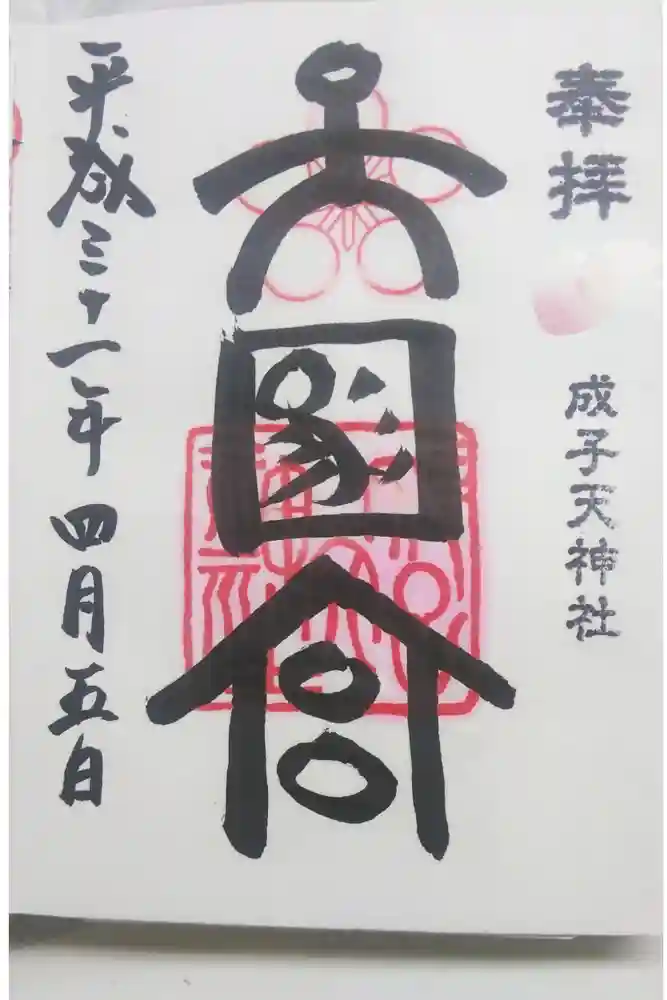 奉拝
成子天神社
大國宮
平成三十一年四月五日